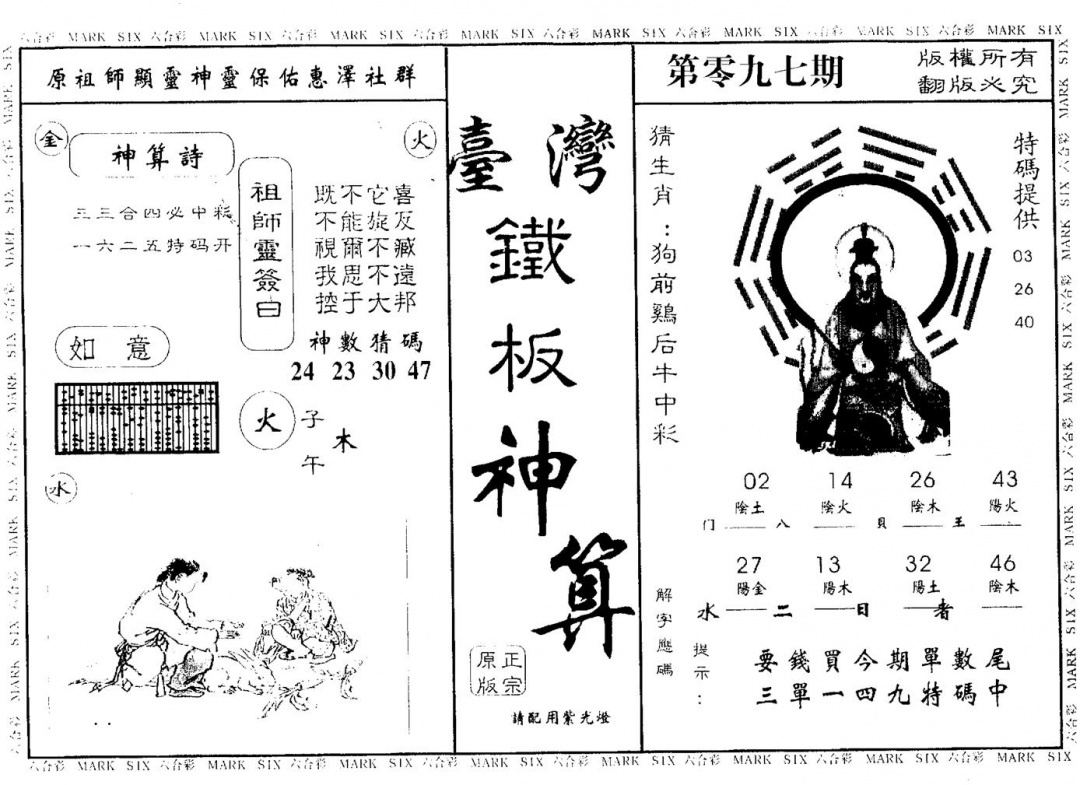 六合彩 MARK SIX 六合彩 MARK SIX 六合彩 MARK SIX 六合彩 MARK SIX 六合彩 MARK SIX 六合彩 MARK SIX 六合彩 MARK SIX 六合彩 MARK SIX
原祖師顯靈神靈保佑惠澤社群
金
火
神算詩
三三合四必中彩
一六二五特码开
祖師靈簽曰
既不它喜
不能旋反
視爾不臧
我思不遠
控于大邦
神數猜碼
24 23 30 47
如意
火
子
午
木
水
臺灣
鐵
板
神
算
正宗
原版
請配用紫光燈
第零九七期
版權所有
翻版必究
猜生肖:狗前鷄后牛中彩
特碼提供
03
26
40
02 14 26 43
陰土 陰火 陰木 陽火
门 八 貝 王
27 13 32 46
陽金 陽木 陽土 陰木
水 二 日 者
解字應碼
提示:
要錢買今期單數尾
三單一四九特碼中
六合彩 MARK SIX 六合彩 MARK SIX 六合彩 MARK SIX 六合彩 MARK SIX 六合彩 MARK SIX 六合彩 MARK SIX 六合彩 MARK SIX 六合彩 MARK SIX